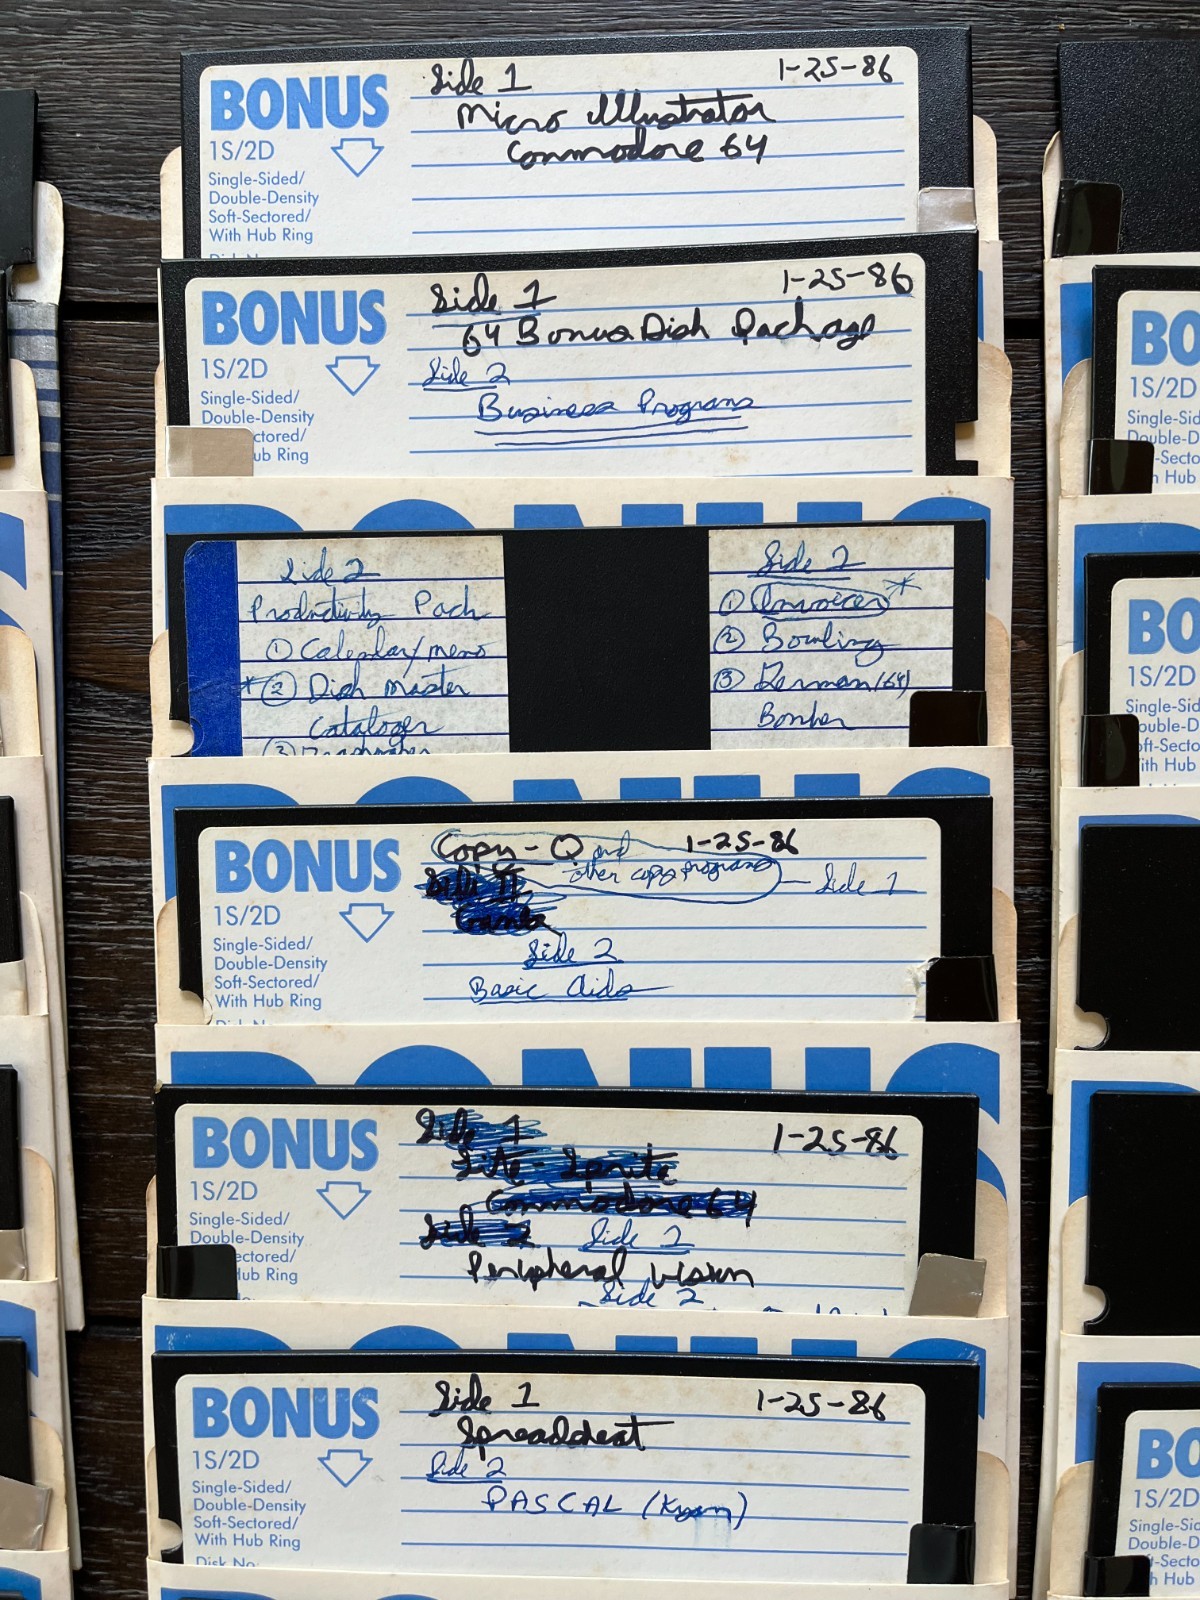 Side 1 1-25-86
BONUS
Micro Illustrator
Commodore 64
1S/2D
Single-Sided/
Double-Density
Soft-Sectored/
With Hub Ring
Side 1 1-25-86
BONUS
64 Bonus Disk Package
1S/2D
Side 2
Business Programs
Single-Sided/
Double-Density
ctored/
ub Ring
BONUS
Side 2
Productivity Pack
① Calendar/memo
*② Disk master
Cataloger
Side 2
① Invoicer *
② Bowling
③ German (64)
Bomber
BONUS
Copy-Q and 1-25-86
other copy programs — Side 1
BONUS
1S/2D
Side 2
Basic Aids
Single-Sided/
Double-Density
Soft-Sectored/
With Hub Ring
BONUS
Side 1 1-25-86
BONUS
Lite-Sprite
Commodore 64
1S/2D
Side 2 Side 1
Peripheral Vision
Side 2
Single-Sided/
Double-Density
ectored/
Hub Ring
BONUS
Side 1 1-25-86
BONUS
Spreadsheet
1S/2D
Side 2
PASCAL (Kyan)
Single-Sided/
Double-Density
Soft-Sectored/
With Hub Ring
Disk No.
BO
1S/2D
Single-Sid
Double-D
-Secto
n Hub
BO
1S/2D
Single-Sid
ouble-D
oft-Secto
ith Hub
BO
1S/2D
Single-Sid
Double-D
t-Secto
h Hub